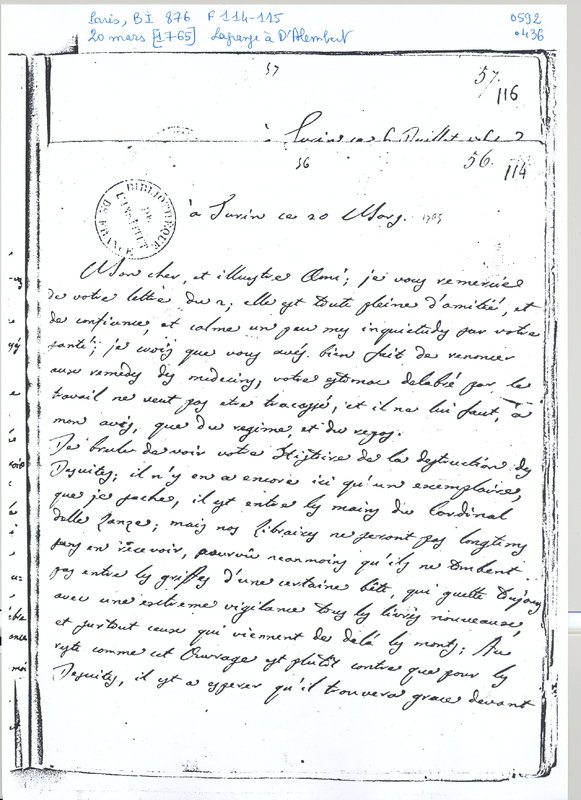 Paris, BI 876 F 114-115
0592
20 mars [1765] Lagrange à D'Alembert
0436
57
57
116
à Turin ce 6 Juillet
56
56.
114
BIBLIOTHEQUE
DE L'INSTITUT
DE FRANCE
à Turin ce 20 Mars. 1765
Mon cher, et illustre Ami; je vous remercie
de votre lettre du 2; elle est toute pleine d'amitié, et
de confiance, et calme un peu mes inquietudes sur votre
santé; je crois que vous avés bien fait de renoncer
aux remedes des medecins, votre estomac delabré par le
travail ne veut pas etre tracassé, et il ne lui faut, à
mon avis, que du regime, et du repos.
Je brule de voir votre Histoire de la destruction des
Jesuites; il n'y en a encore ici qu'un exemplaire,
que je sache, il est entre les mains du Cardinal
delle Lanze; mais nos libraires ne seront pas longtems
sans en recevoir, pourvû neanmoins qu'ils ne tombent
pas entre les griffes d'une certaine bête, qui guette toujours
avec une extreme vigilance tous les livres nouveaux,
et surtout ceux qui viennent de delà les monts; Au
reste comme cet Ouvrage est plûtôt contre que pour les
Jesuites, il est a esperer qu'il trouvera grace devant